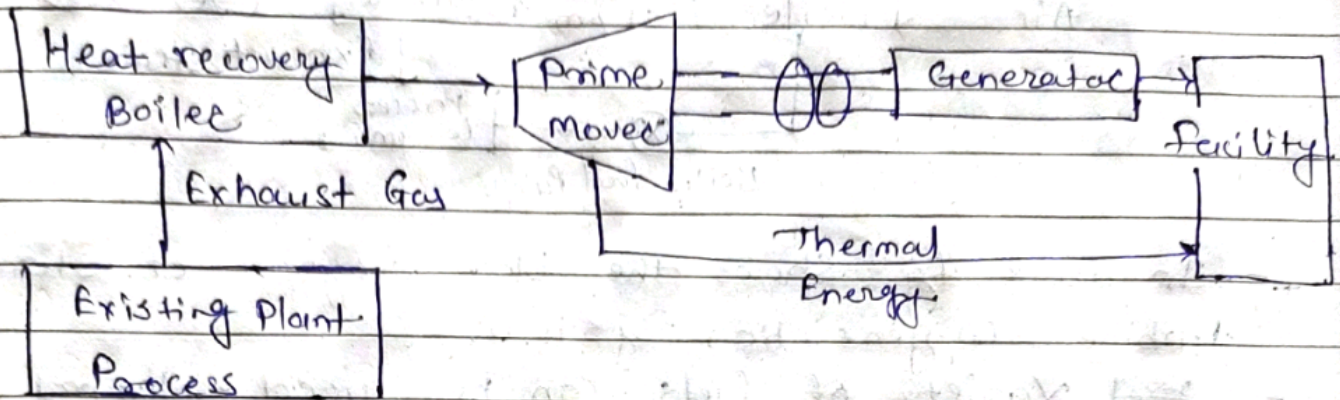 Heat recovery
Boiler
Prime
mover
Generator
facility
Exhaust Gas
Thermal
Energy
Existing Plant
Process